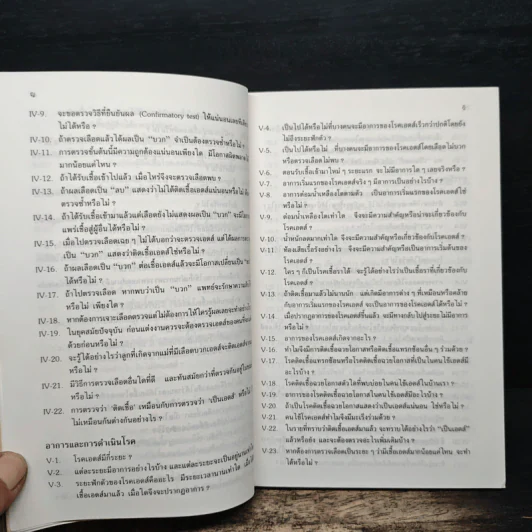 IV-9. จะขอตรวจวิธีที่ยืนยันผล (Confirmatory test) ให้แน่นอนเลยทีเดียว
ไม่ได้หรือ ?
IV-10. ถ้าตรวจเลือดแล้วได้ผลเป็น “บวก” จำเป็นต้องตรวจซ้ำหรือไม่ ?
IV-11. การตรวจขั้นต้นนี้มีความถูกต้องแน่นอนเพียงใด มีโอกาสผิดพลาด
มากน้อยแค่ไหน ?
IV-12. ถ้าได้รับเชื้อเข้าไปแล้ว เมื่อไหร่จึงจะตรวจเลือดพบ ?
IV-13. ถ้าผลเลือดเป็น “ลบ” แสดงว่าไม่ได้ติดเชื้อเอดส์แน่นอนหรือไม่
ตรวจซ้ำหรือไม่ ?
IV-14. ถ้าได้รับเชื้อเข้ามาแล้วแต่เลือดยังไม่แสดงผลเป็น “บวก” จะมีโอกาส
แพร่เชื้อสู่ผู้อื่นได้หรือไม่ ?
IV-15. เมื่อไปตรวจเลือดเฉย ๆ ไม่ได้บอกว่าจะตรวจเอดส์ แต่ได้ผล
เป็น “บวก” แสดงว่าติดเชื้อเอดส์ใช่หรือไม่ ?
IV-16. ถ้าผลเลือดเป็น “บวก” ต่อเชื้อเอดส์แล้วจะมีโอกาสเปลี่ยนเป็น
ได้หรือไม่ ?
IV-17. ถ้าไปตรวจเลือด หากพบว่าเป็น “บวก” แพทย์จะรักษาความลับ
หรือไม่ เพียงใด ?
IV-18. หากต้องการเจาะเลือดตรวจแต่ไม่ต้องการให้ใครรู้ผลเลยจะทำอย่างไร
IV-19. ในยุคสมัยปัจจุบัน ก่อนแต่งงานควรจะต้องตรวจเลือดเอดส์ของคนที่
ด้วยก่อนหรือไม่ ?
IV-20. จะรู้ได้อย่างไรว่าลูกที่เกิดจากแม่ที่มีเลือดบวกเอดส์จะติดเอดส์
หรือไม่ ?
IV-21. มีวิธีการตรวจเลือดอื่นใดที่ดี และทันสมัยกว่าที่ตรวจกันอยู่
ไหม ?
IV-22. การตรวจว่า ‘ติดเชื้อ’ เหมือนกับการตรวจว่า ‘เป็นเอดส์’ หรือไม่
ไม่เหมือนกันต่างกันอย่างไร ?
อาการและการดำเนินโรค
V-1. โรคเอดส์มีกี่ระยะ ?
V-2. แต่ละระยะมีอาการอย่างไรบ้าง และแต่ละระยะจะเป็นอยู่นาน
V-3. ระยะฟักตัวของโรคเอดส์คืออะไร มีระยะเวลานานเท่าใด เมื่อ
เชื้อเอดส์มาแล้ว เมื่อใดจึงปรากฏอาการ ?
V-4. เป็นไปได้หรือไม่ที่บางคนจะมีอาการของโรคเอดส์เร็วกว่าปกติโดยยัง
ไม่ถึงระยะฟักตัว ?
V-5. เป็นไปได้หรือไม่ ที่บางคนจะมีอาการของโรคเอดส์โดยเลือด ไม่บวก
หรือตรวจเลือดไม่พบ ?
V-6. ตอนรับเชื้อเข้ามาใหม่ ๆ ระยะแรก จะไม่มีอาการใด ๆ เลยจริงหรือ ?
V-7. อาการเริ่มแรกของโรคเอดส์จริง ๆ มีอาการเป็นอย่างไรบ้าง ?
V-8. อาการต่อมน้ำเหลืองโตตามตัว เป็นอาการเริ่มแรกของโรคเอดส์ใช่
หรือไม่ ?
V-9. ต่อมน้ำเหลืองโตเท่าใด จึงจะมีความสำคัญหรือน่าจะเกี่ยวข้องกับ
โรคเอดส์ ?
V-10. น้ำหนักลดมากเท่าใด จึงจะมีความสำคัญหรือเกี่ยวข้องกับโรคเอดส์ ?
V-11. ท้องเสียเรื้อรังอย่างไร จึงจะมีความสำคัญหรือเป็นอาการเริ่มต้นของ
โรคเอดส์ ?
V-12. ใคร ๆ ก็เป็นโรคเชื้อราได้ จะรู้ได้อย่างไรว่าเป็นเชื้อราที่เกี่ยวข้องกับ
โรคเอดส์ ?
V-13. ถ้าติดเชื้อมาแล้วไม่นานนัก แต่เกิดมีอาการต่าง ๆ ที่เหมือนหรือคล้าย
กับอาการเริ่มแรกของโรคเอดส์ จะเป็นอาการของโรคเอดส์ได้หรือไม่ ?
V-14. เมื่อปรากฏอาการของโรคเอดส์ขึ้นแล้ว จะมีทางกลับไปสู่ระยะไม่มีอาการ
หรือไม่ ?
V-15. อาการของโรคเอดส์เกิดจากอะไร ?
V-16. ทำไมจึงมีการติดเชื้อฉวยโอกาสหรือติดเชื้อแทรกซ้อนอื่น ๆ ร่วมด้วย ?
V-17. โรคติดเชื้อแทรกซ้อนหรือโรคติดเชื้อฉวยโอกาสที่เป็นในคนไข้เอดส์มี
อะไรบ้าง ?
V-18. โรคติดเชื้อฉวยโอกาสตัวใดที่พบบ่อยในคนไข้เอดส์ในบ้านเรา ?
V-19. อาการของโรคติดเชื้อฉวยโอกาสในคนไข้เอดส์มีอะไรบ้าง ?
V-20. ถ้าเป็นโรคติดเชื้อฉวยโอกาสแสดงว่าเป็นเอดส์แน่นอน ใช่หรือไม่ ?
V-21. คนไข้โรคเอดส์ทำไมจึงมีมะเร็งร่วมด้วย ?
V-22. ในรายที่ทราบว่าติดเชื้อเอดส์แล้ว จะทราบได้อย่างไรว่า “เป็นเอดส์”
แล้วหรือยัง และจะต้องตรวจอะไรเพิ่มเติมบ้าง ?
V-23. หากต้องการตรวจเลือดเป็นระยะ ๆ ว่ามีเชื้อเอดส์มากน้อยแค่ไหน จะทำ
ได้หรือไม่ ?